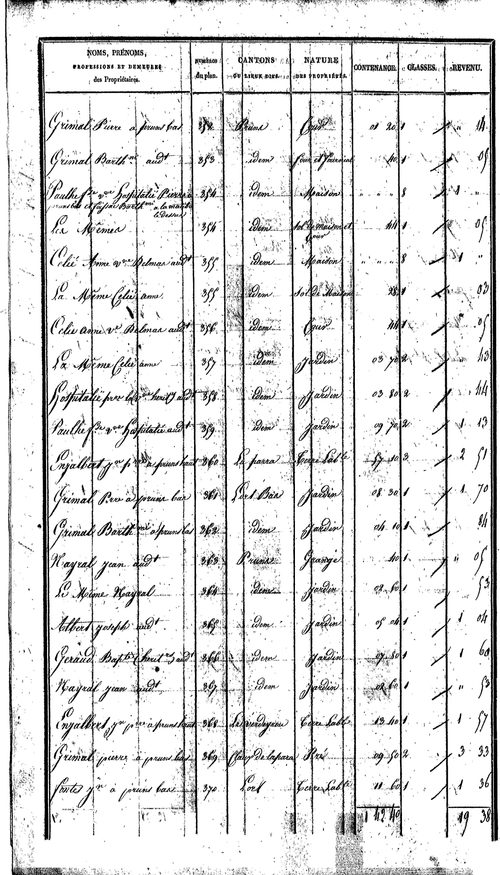 NOMS, PRÉNOMS, PROFESSIONS ET DEMEURES des Propriétaires. NUMÉROS du plan. CANTONS OU LIEUX DITS. NATURE DES PROPRIÉTÉS. CONTENANCE. CLASSES. REVENU.
Grimal Pierre à pruns bas 352 Pruns Cour 01 20 1 " 14
Grimal Barth.mi aud.t 353 idem 40 1 " 05
Paulhe f.e v.ve hospitalié Pierre à 354 idem Maison " " 8 1 "
Les Mêmes 354 idem Sol de Maison et Cour 44 1 05
Célié Anne v.ve Delmas aud.t 355 idem Maison " " 8 1 "
La Même Célié anne 355 idem Sol de Maison 28 1 03
Célié anne v.e Delmas aud.t 356 idem Cour 44 1 " 05
La Même Célié anne 357 idem Jardin 03 70 2 43
hospitalié aud.t 358 idem Jardin 03 80 2 44
Paulhe f.e v.ve hospitalié aud.t 359 idem Jardin 09 70 2 1 13
Enjalbert j.n p.re à pruns haut 360 La parra Terre Lab.le 57 10 3 2 51
Grimal Pre à pruns bas 361 L'ort Bas Jardin 08 30 1 1 70
Grimal Barth.mi à pruns bas 362 idem Jardin 04 10 1 84
Nayral jean aud.t 363 Pruns Grange 40 1 " 05
Le Même Nayral 364 idem Jardin 02 60 1 53
Albert joseph aud.t 365 idem Jardin 05 04 1 1 04
Geraud Bap.te aud.t 366 idem Jardin 07 80 1 1 60
Nayral jean aud.t 367 idem Jardin 02 60 1 " 53
Enjalbert j.n p.re à pruns haut 368 Terre Lab.le 13 40 1 1 57
Grimal pierre à pruns bas 369 Pré 09 50 2 3 33
j.n à pruns bas 370 L'ort Terre Lab.le 11 60 1 1 36
1 42 40 19 38